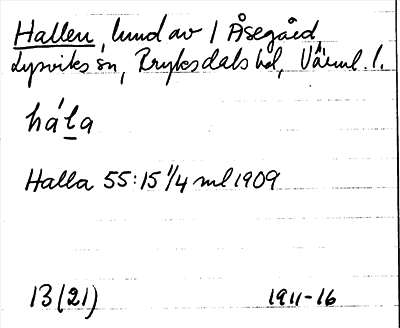 Hallen, lund av 1 Åsegård,
Lysviks sn, Fryksdals hd, Värml. l.
háḷa
Halla 55:15 1/4 ml 1909
13(21) 1911-16